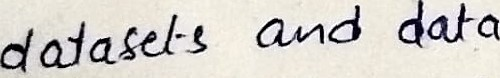 datasets and data